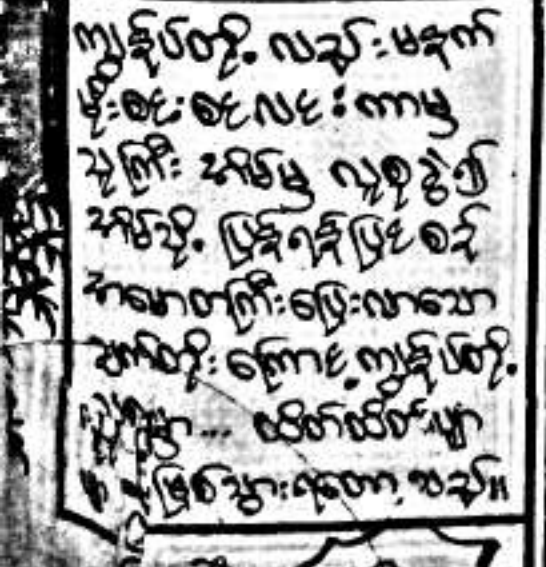 ကျွန်ုပ်တို့လည်းမနက်
မိုးစင်းစင်လင်းကာမှ
သူကြီးအိမ်မှ လူစုခွဲ၍
အိမ်သို့ပြန်ရန်ပြင်စဉ်
အမောတကြီးပြေးလာသော
သက်တိုးကြောင့်ကျွန်ုပ်တို့
... ထိတ်ထိတ်ပျာ
ဖြစ်သွားရတော့သည်။